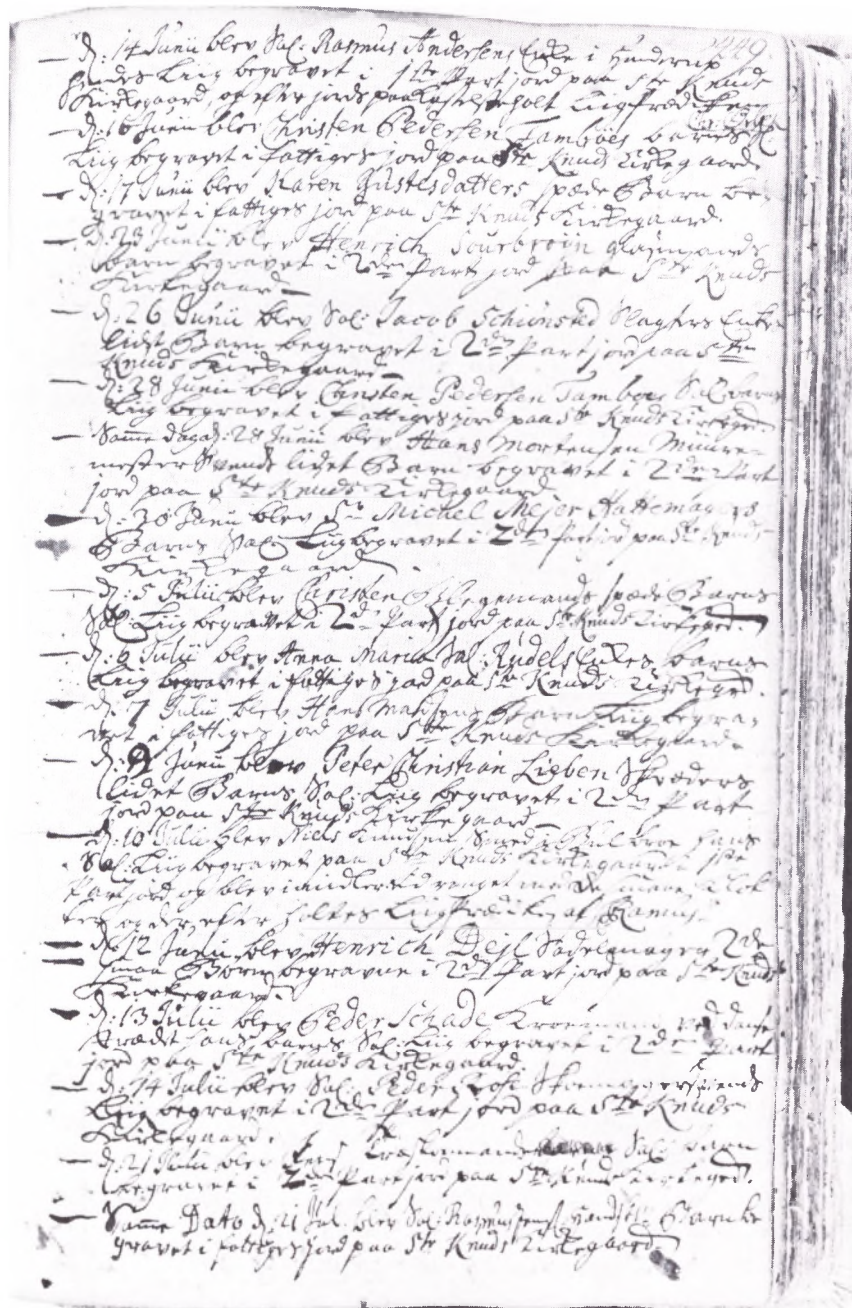 449.
d: 14 Junii blev Sal: Rasmus Andersens Enke i Hunderup
hendes Liig begravet i 1ste Part jord paa Ste Knuds
Kirkegaard, og efter jords paakastelse holt Liigprædiken
d: 16 Junii blev Christen Pedersen Tamboes barns
Liig begravet i fattiges jord paa Ste Knuds Kirkegaard
d: 17 Junii blev Karen Justesdatters spæde Barn be-
gravet i fattiges jord paa Ste Knuds Kirkegaard.
d: 23 Junii blev Henrich glasmands
barn begravet i 2den Part jord paa Ste Knuds
Kirkegaard
d: 26 Junii blev Sal: Jacob Schiønsted Slagters Enkes
lidet Barn begravet i 2den Part jord paa Ste
Knuds Kirkegaard
d: 28 Junii blev Christen Pedersen Tamboes Sal: barns
Liig begravet i fattiges jord paa Ste Knuds Kirkegd
Samme dag d: 28 Junii blev Hans Mortensen Muure-
mester Svends lidet Barn begravet i 2den Part
jord paa Ste Knuds Kirkegaard
d: 30 Junii blev Sr Michael Mejer Hattemagers
Barns Sal: Liig begravet i 2den Part jord paa Ste Knuds
Kirkegaard.
d: 5 Julii blev Christen spæde Barns
Sal: Liig begravet i 2den Part jord paa Ste Knuds Kirkegd.
d: 6 Julii blev Anna Maria Sal: Rudels Enkes barns
Liig begravet i fattiges jord paa Ste Knuds Kirkegd.
d: 7 Julii blev Hans Madsens Barns Liig begra-
vet i fattiges jord paa Ste Knuds Kirkegaard
d: 9 Junii blev Peter Christian Lieben Skræders
lidet Barns Sal: Liig begravet i 2den Part
jord paa Ste Knuds Kirkegaard
d: 10 Julii blev Niels Knudsen Smed hans
Sal: Liig begravet paa Ste Knuds Kirkegaard i 1ste
Part jord, og blev ringet med de smaae Klok-
ker og der efter holtes Liigprædiken af
d: 12 Junii blev Henrich Dejl Sadelmagers 2de
smaa Børn begravne i 2den Part jord paa Ste Knuds
Kirkegaard.
d: 13 Julii blev Peder Schade Kroemand ved
hans barns Sal: Liig begravet i 2den Part
jord paa Ste Knuds Kirkegaard
d: 14 Julii blev Sal: Peder Skoemagersvends
Liig begravet i 2den Part jord paa Ste Knuds
Kirkegaard.
d: 21 Julii blev Sal: barn
begravet i 2den Part jord paa Ste Knuds Kirkegd.
Samme Dato d: 21 Jul: blev Sal: Barn be
gravet i fattiges jord paa Ste Knuds Kirkegaard